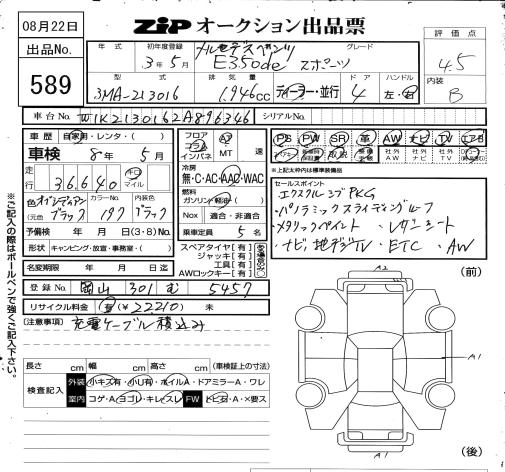 08月22日
ZIP オークション出品票
出品No.
589
年式
初年度登録
3年5月
メルセデスベンツ
E350de スポーツ
グレード
評価点
4.5
内装
B
型式
3MA-213016
排気量
1,946cc
ディーラー・並行
ドア
4
ハンドル
左・右
車台No.
W1K2130162A896346
シリアルNo.
車歴 自家用・レンタ・( )
車検 8年5月
走行 36,640 キロ マイル
色 オブシディアンブラック
(元色 )
カラーNo. 197
内装色 ブラック
予備検 年 月 日 (3・8) No.
形状 キャンピング・放宣・事務室・( )
名変期限 年 月 日迄
登録No. 岡山 301 む 5457
リサイクル料金 (有) ¥22210 未
(注意事項) 充電ケーブル積込み
フロア コラム インパネ AT MT 速
冷房 無・C・AC・AAC・WAC
燃料 ガソリン・軽油・( )
Nox 適合・非適合
乗車定員 5名
スペアタイヤ [ 有 ]
ジャッキ [ 有 ]
工具 [ 有 ]
AWロックキー [ 有 ]
PS PW SR 革 AW ナビ TV エアB
社外AW 社外ナビ 社外TV
*上記太枠内は標準装備品
セールスポイント
エクスクルーシブPKG
・パノラミックスライディングルーフ
・メタリックペイント ・レザーシート
・ナビ地デジTV ・ETC ・AW
長さ cm 幅 cm 高さ cm (車検証上の寸法)
検査記入 外装 小キズ有・小U有・ホイルA・ドアミラーA・ワレ
室内 コゲ・A・ヨゴレ・キレ・スレ FW トビ石・A・×要ス
(前)
A2
A1
A1
(後)
※ご記入の際はボールペンで強くご記入下さい。